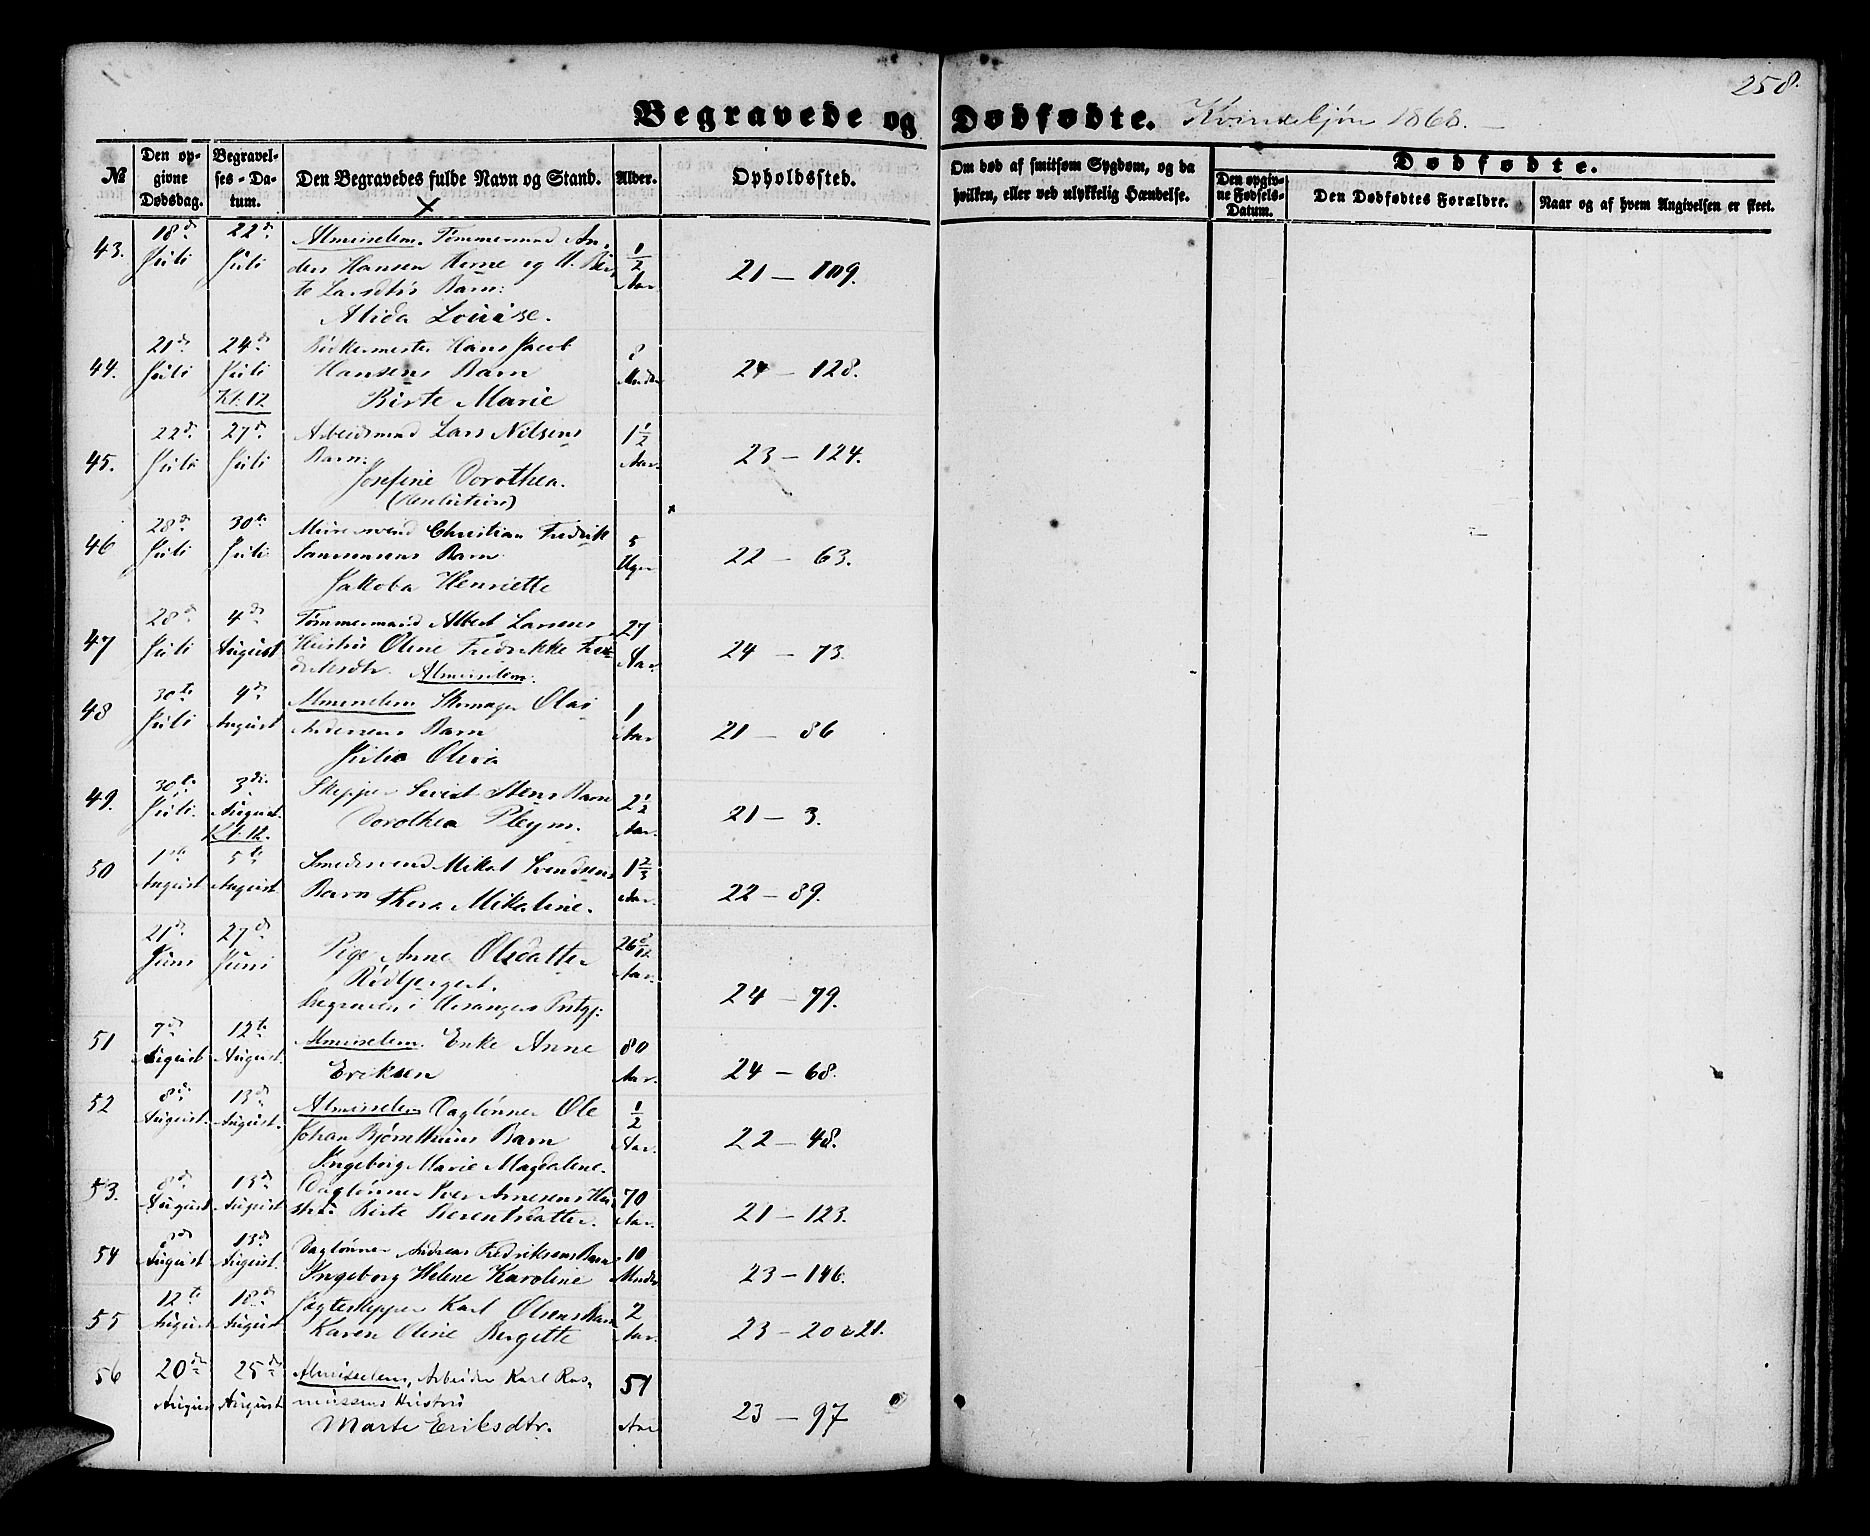 258.
Begravede og Dødfødte. Kvindekjøn 1868.
№
Den opgivne Dødsdag.
Begravelses-Datum.
Den Begravedes fulde Navn og Stand.
Alder.
Opholdssted.
Om død af smitsom Sygdom, og da hvilken, eller ved ulykkelig Hændelse.
Dødfødte.
Den opgivne Fødsels-Datum.
Den Dødfødtes Forældre.
Naar og af hvem Angivelsen er skeet.
43. 18de Juli 22de Juli Almisselem. Tømmermand An-
ders Hansen og H. Bir-
te Larsdtrs Barn:
Alida Louise.
1/2 Aar 21 — 109.
44. 21de Juli 24de Juli Kl: 12 Hans Jacob
Hansens Barn
Birte Marie
8 Mndr 24 — 128.
45. 22de Juli 27de Juli Arbeidsmand Lars Nilsens
Barn:
Josefine Dorothea.
1 1/2 Aar. 23 — 124.
46 28de Juli 30te Juli Murersvend Christian Fredrik
Barn
Jakoba Henriette
5 Uger 22 — 63.
47 28de Juli 4de August Tømmermand Albert Larsens
Hustru Oline Fredrikke Fre-
driksdtr. Almisselem.
27 Aar 24 — 73.
48 30te Juli 4de August Almisselem Skomager Olai
Andersens Barn
Julia Olivia
1 Aar 21 — 86
49. 30te Juli. 3die August. Kl: 12. Skipper Stens Barn
Dorothea Pleym.
2 1/2 Aar. 21 — 3.
50 1ste August 5te August Smedesvend Mikal Svendsens
Barn Thora Mikaline.
1 2/3 Aar. 22 — 89.
21de Juni 27de Juni Pige Anne Olsdatter
Begraven i Præstgj:
26 Aar. 24 — 79.
51 7de August 12te August. Almisselem. Enke Anne
Eriksen
80 Aar. 24 — 68.
52 8de August. 13de August. Almisselem Daglønner Ole
Johan Bjørnthuns Barn
Ingeborg Marie Magdalene.
1/2 Aar. 22 — 48.
53. 8de August 13de August Daglønner Iver Arnesens Hu-
stru Birte Berentsdatter.
70 Aar. 21 — 123.
54 August 13de August. Daglønner Andreas Fredriksens Barn
Ingeborg Helene Karoline
10 Mndr 23 — 146.
55 12te August 18de August Jagteskipper Karl Olsens Barn
Karen Oline Bergitte
2 Aar. 23 — 20 & 21.
56 20de August 25de August Almisselem, Arbeider Karl Ras-
mussens Hustru
Marte Eriksdtr.
51 Aar 23 — 97